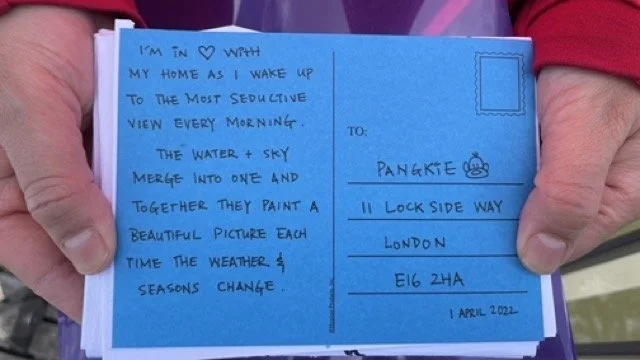 I'M IN ♡ WITH
MY HOME AS I WAKE UP
TO THE MOST SEDUCTIVE
VIEW EVERY MORNING.
THE WATER + SKY
MERGE INTO ONE AND
TOGETHER THEY PAINT A
BEAUTIFUL PICTURE EACH
TIME THE WEATHER &
SEASONS CHANGE.
TO:
PANGKIE
11 LOCKSIDE WAY
LONDON
E16 2HA
1 APRIL 2022